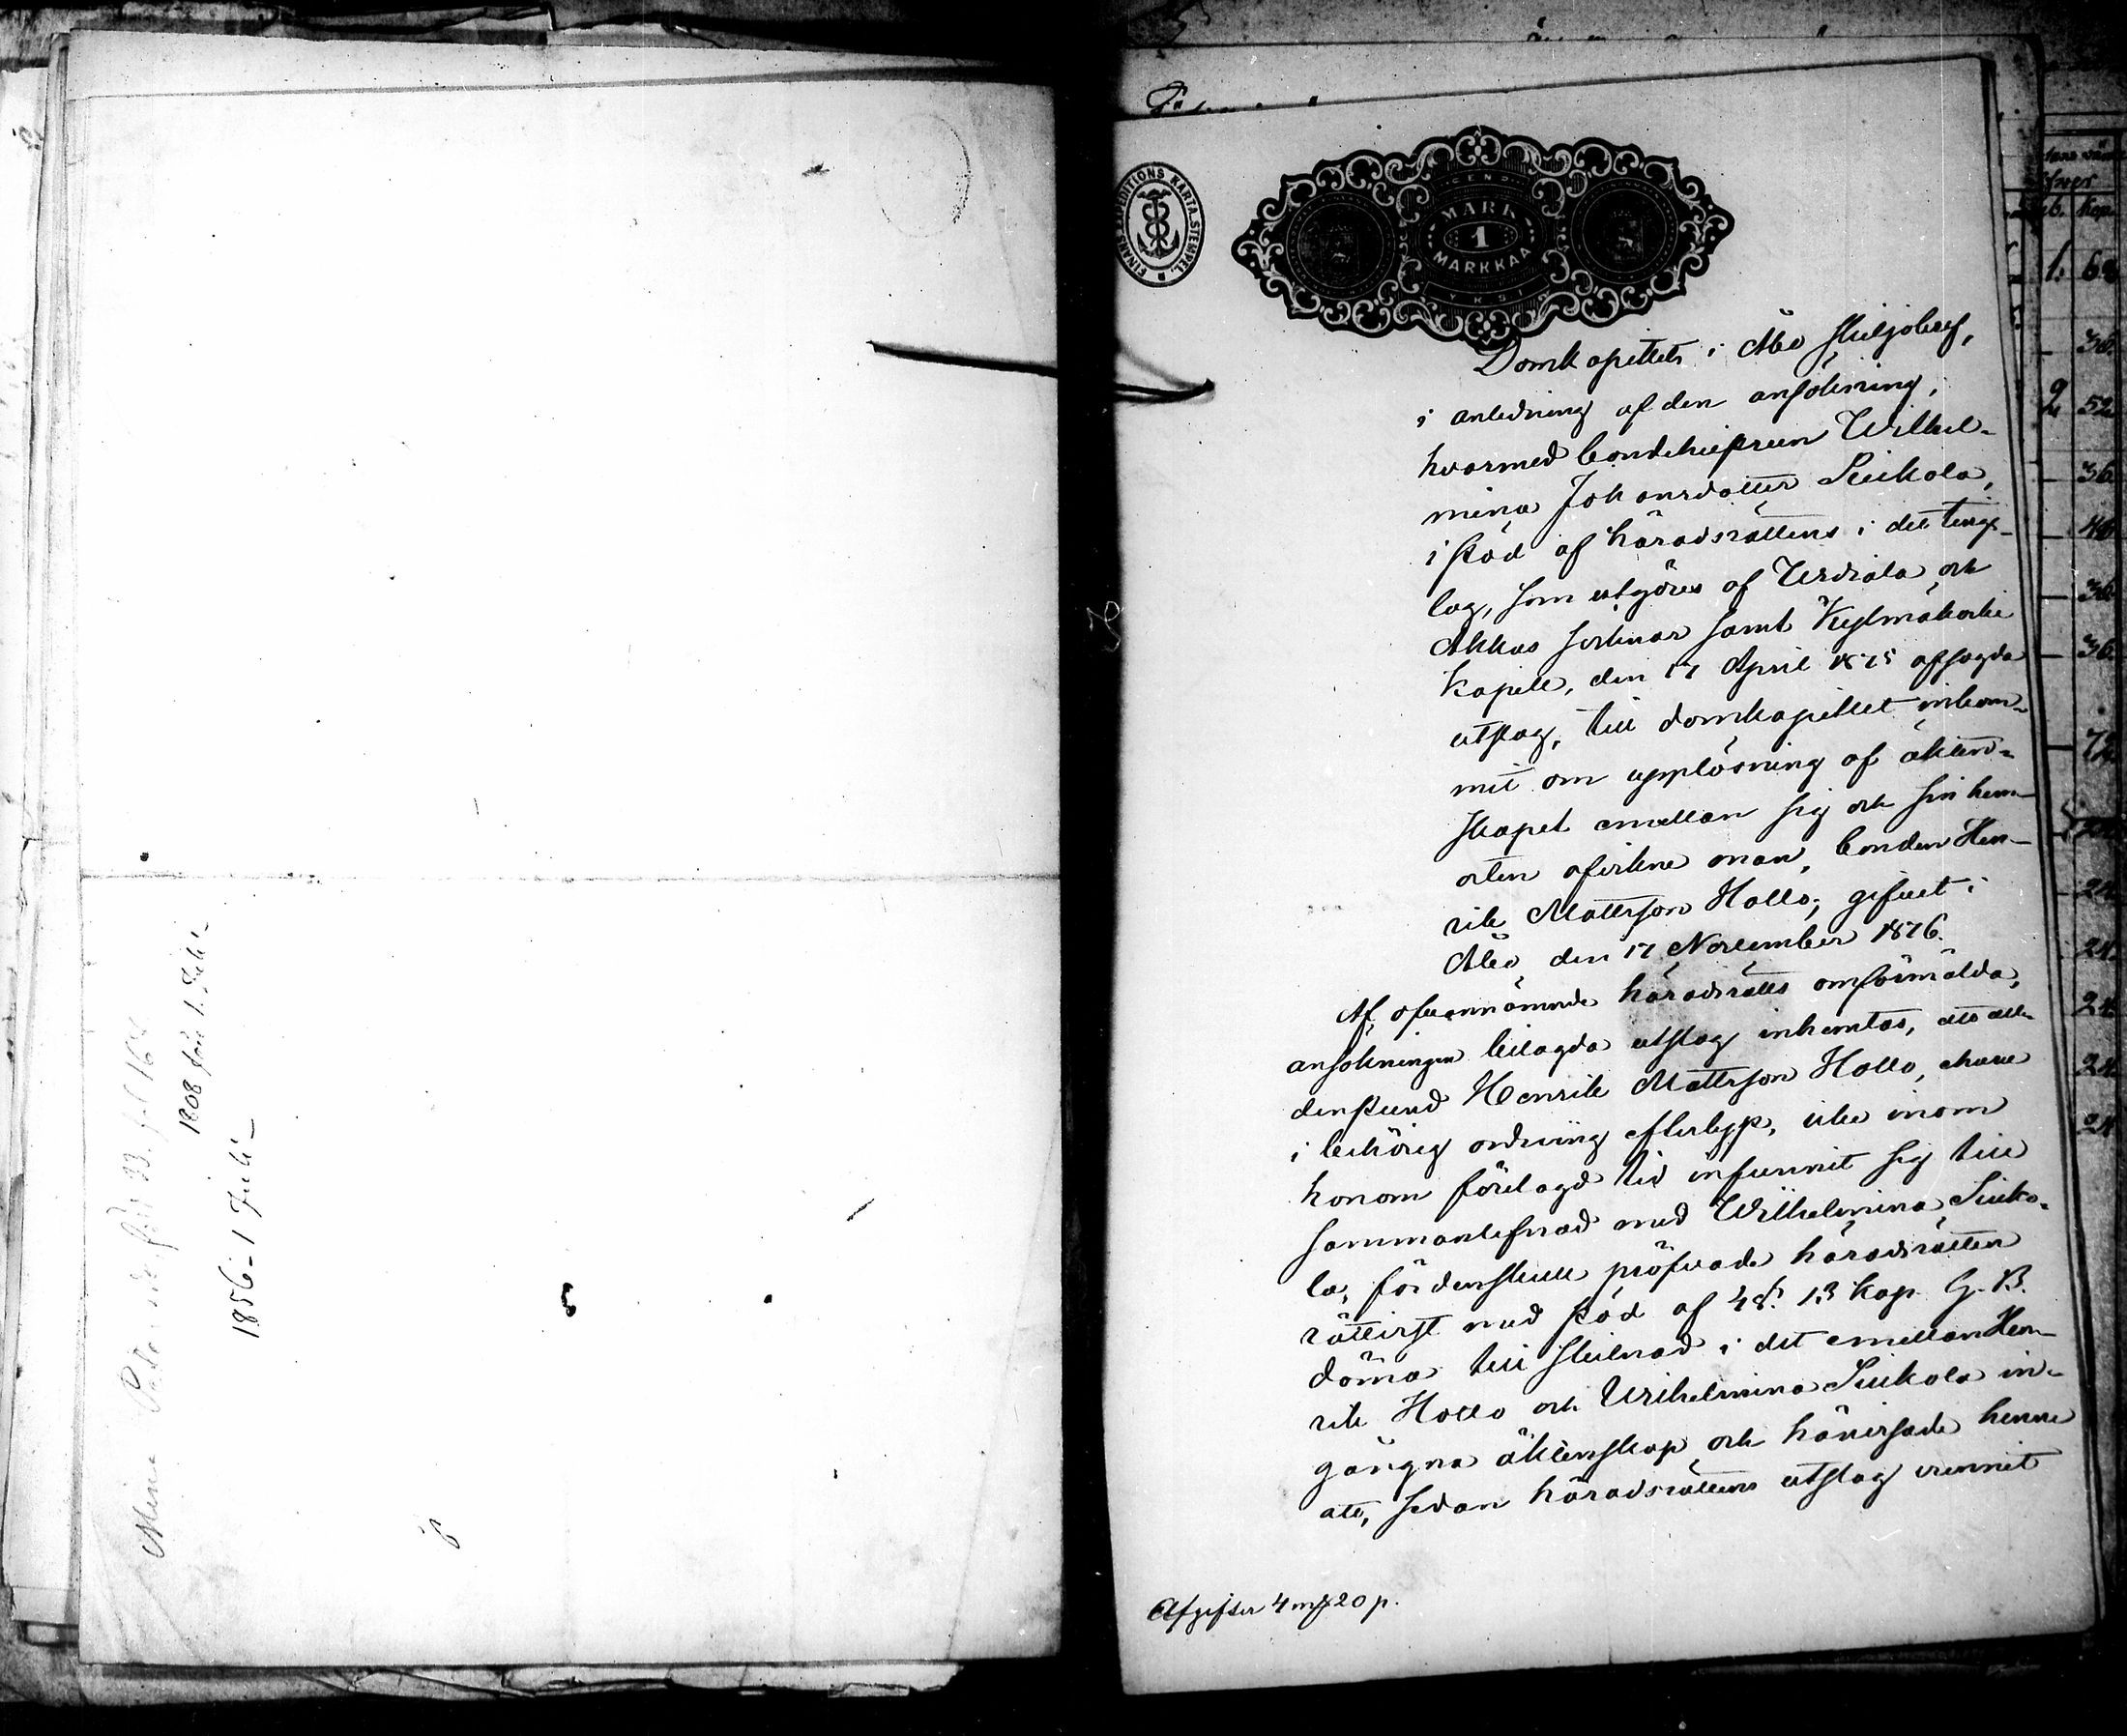 1808 från 1. Juli
1856 - 1 Juli -
FINANS EXPEDITIONS KARTA. STEMPEL.
EN
MARK
1
MARKKAA
YKSI
Domkapitlets i Åbo skiljobref,
i anledning af den ansökning,
hvarmed bondehustrun Wilhel-
mina Johansdotter Siukola,
i stöd af häradsrättens i det tings-
lag, som utgöres af Urdiala och
Akkas socknar samt Kylmäkoski
kapell, den 17 April 1875 afsagda
utslag, till domkapitlet inkom-
mit om upplösning af äkten-
skapet emellan sig och sin hem-
orten afvikne man, bonden Hen-
rik Mattsson Hollo; gifvet i
Åbo, den 17 November 1876.
Af ofvannämnde häradsrätts omförmälda,
ansökningen bilagda utslag inhemtas, att al-
denstund Henrik Mattsson Hollo, ehuru
i behörig ordning efterlyst, icke inom
honom förelagd tid infunnit sig till
sammanlefnad med Wilhelmina Siuko-
la, fördenskull pröfvade häradsrätten
rättvist med stöd af 4 §. 13 kap. G. B.
döma till skilnad i det emellan Hen-
rik Hollo och Wilhelmina Siukola in-
gångna äktenskap och hänvisade henne
att, sedan häradsrättens utslag vunnit
Afgifter 4 mk 20 p.